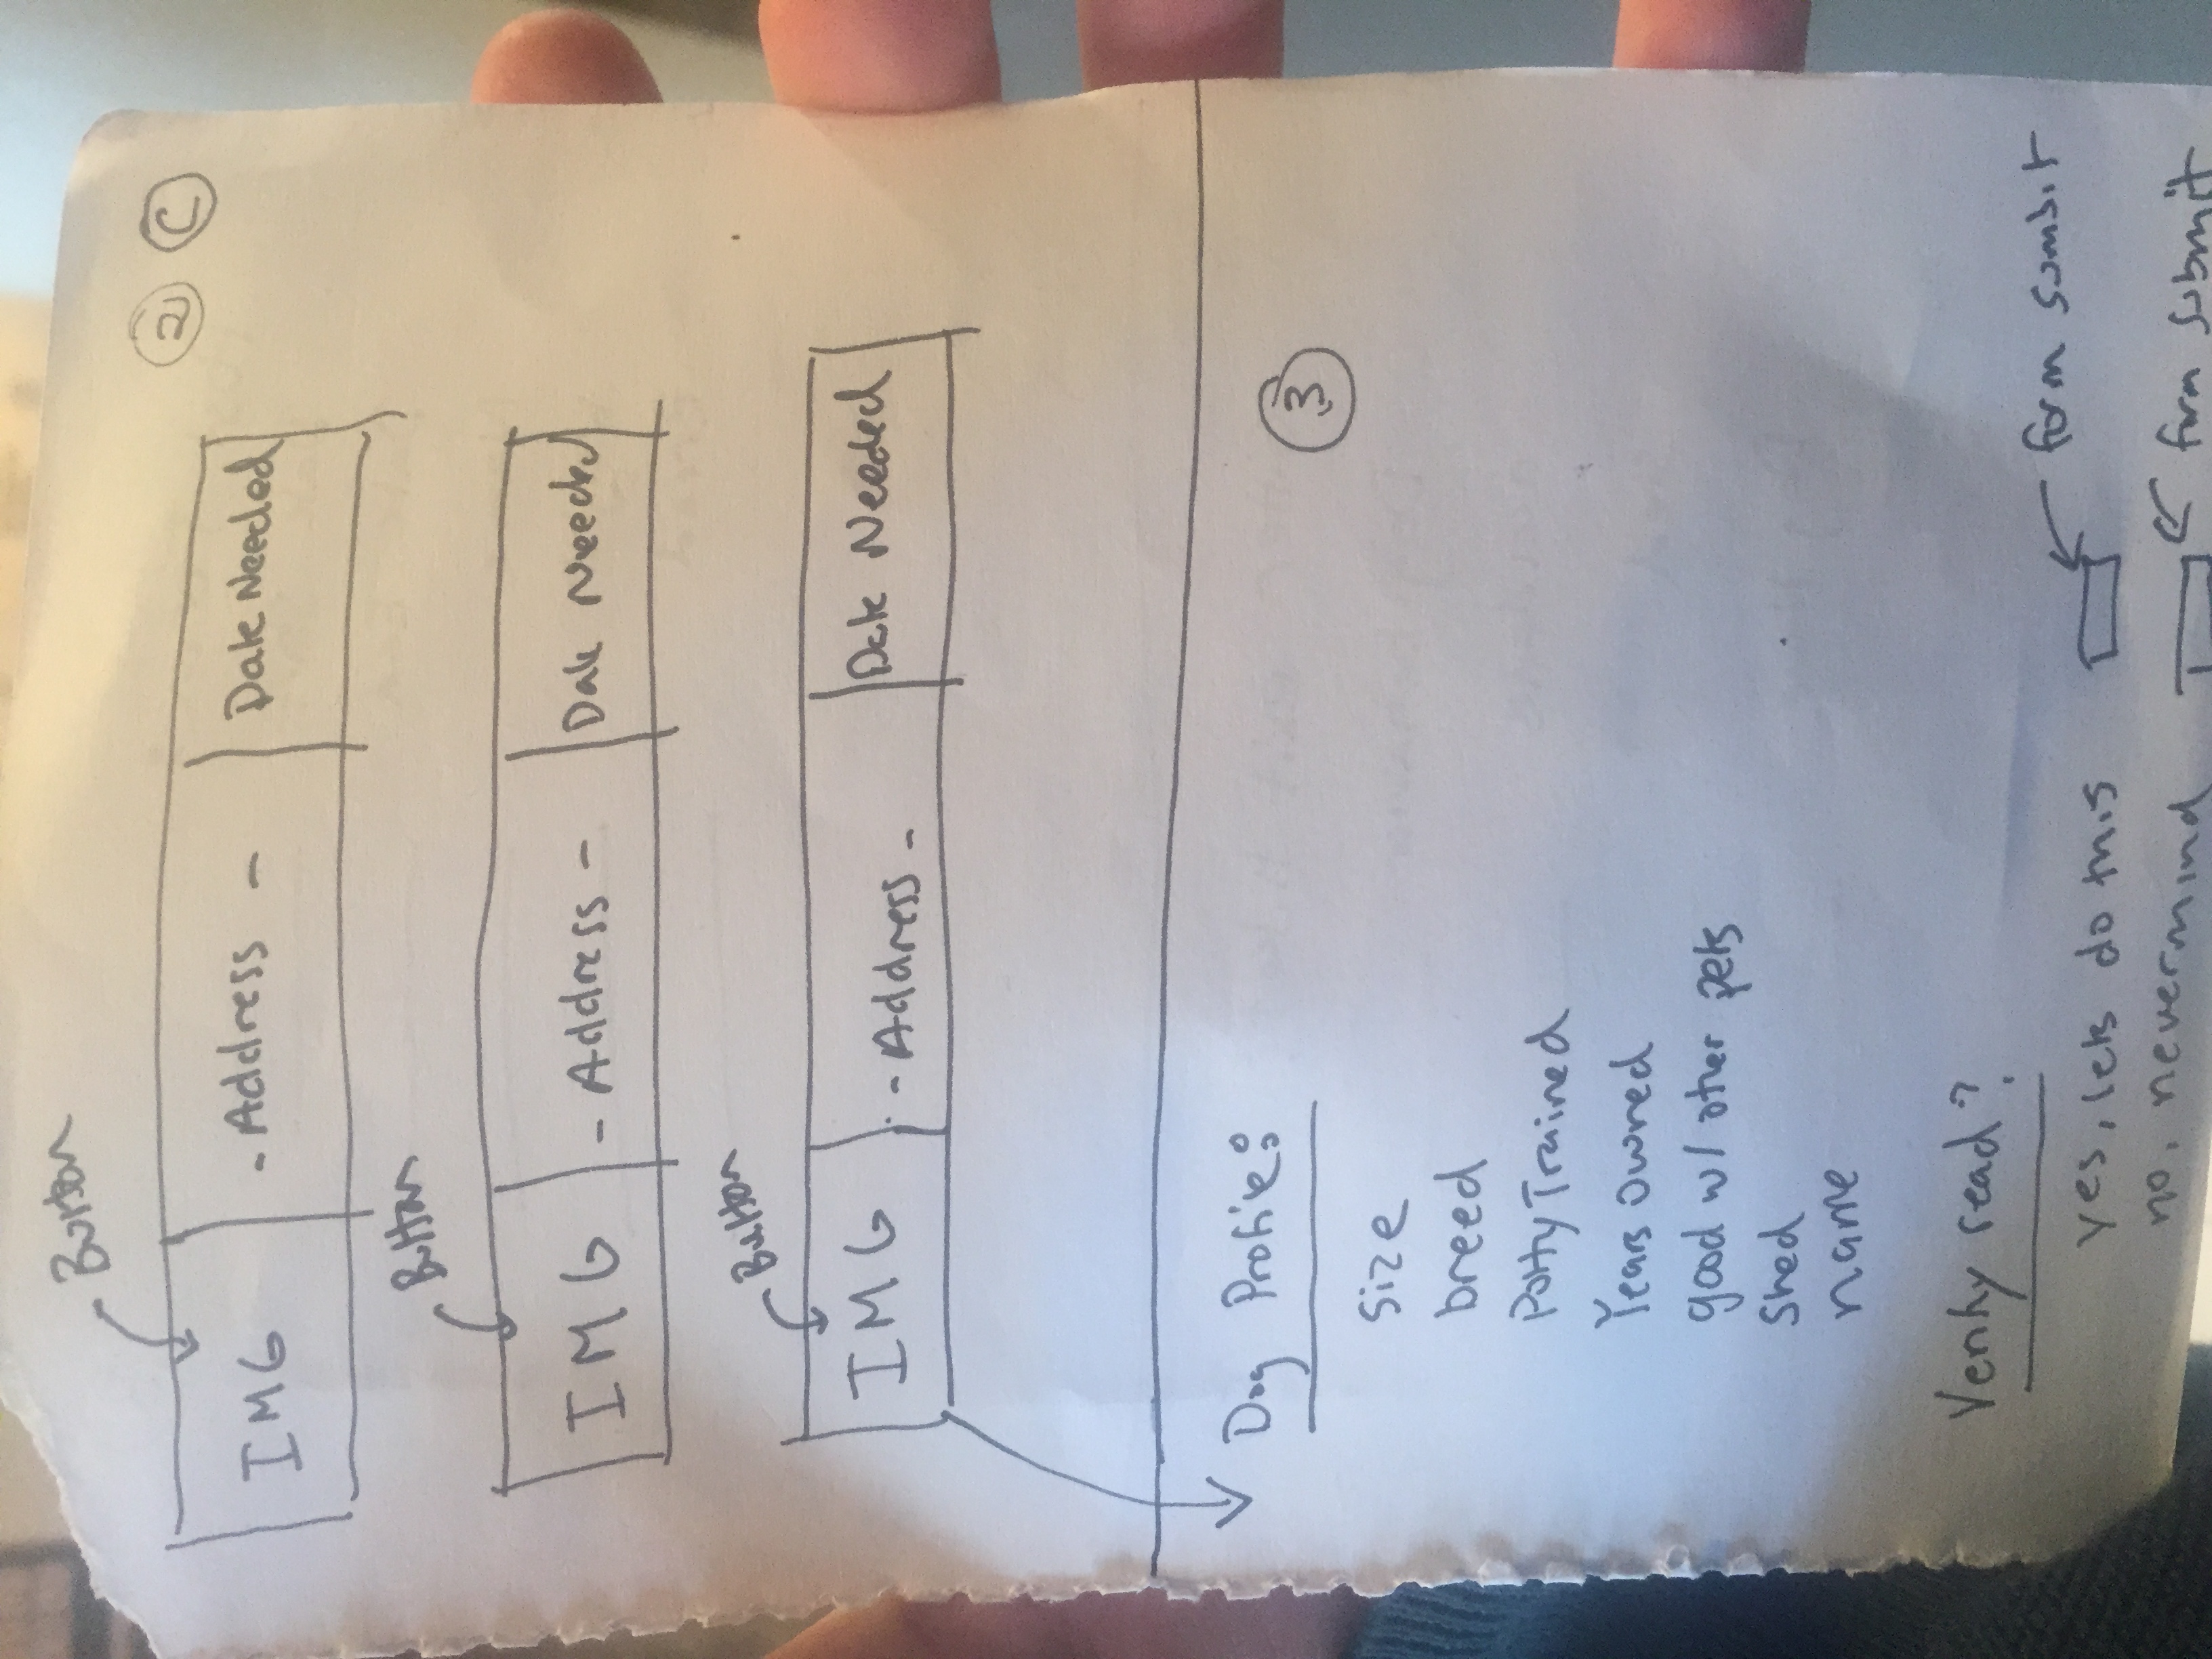 Button
② Ⓒ
IMG - Address - Date Needed
Button
IMG - Address - Date Needed
Button
IMG - Address - Date Needed
Dog Profile:
③
size
breed
Potty Trained
Years owned
good w/ other pets
Shed
name
Verify read?
form sumbit
yes, lets do this
no, nevermind
form submit